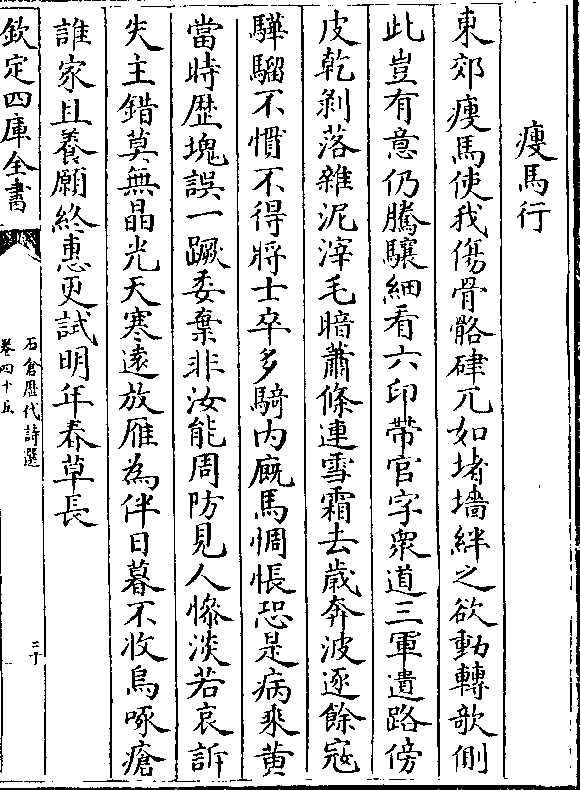 瘦馬行
東郊瘦馬使我傷骨骼硉兀如堵墻絆之欲動轉欹側
此豈有意仍騰驤細看六印帶官字衆道三軍遺路傍
皮乾剥落雜泥滓毛暗蕭條連雪霜去歲奔波逐餘冦
驊騮不慣不得將士卒多騎内廐馬惆悵恐是病乘黄
當時歴塊誤一蹶委棄非汝能周防見人慘淡若哀訴
失主錯莫無晶光天寒逺放雁為伴日暮不收烏啄瘡
誰家且養願終惠更試明年春草長
欽定四庫全書
石倉歴代詩選
卷四十五
三十